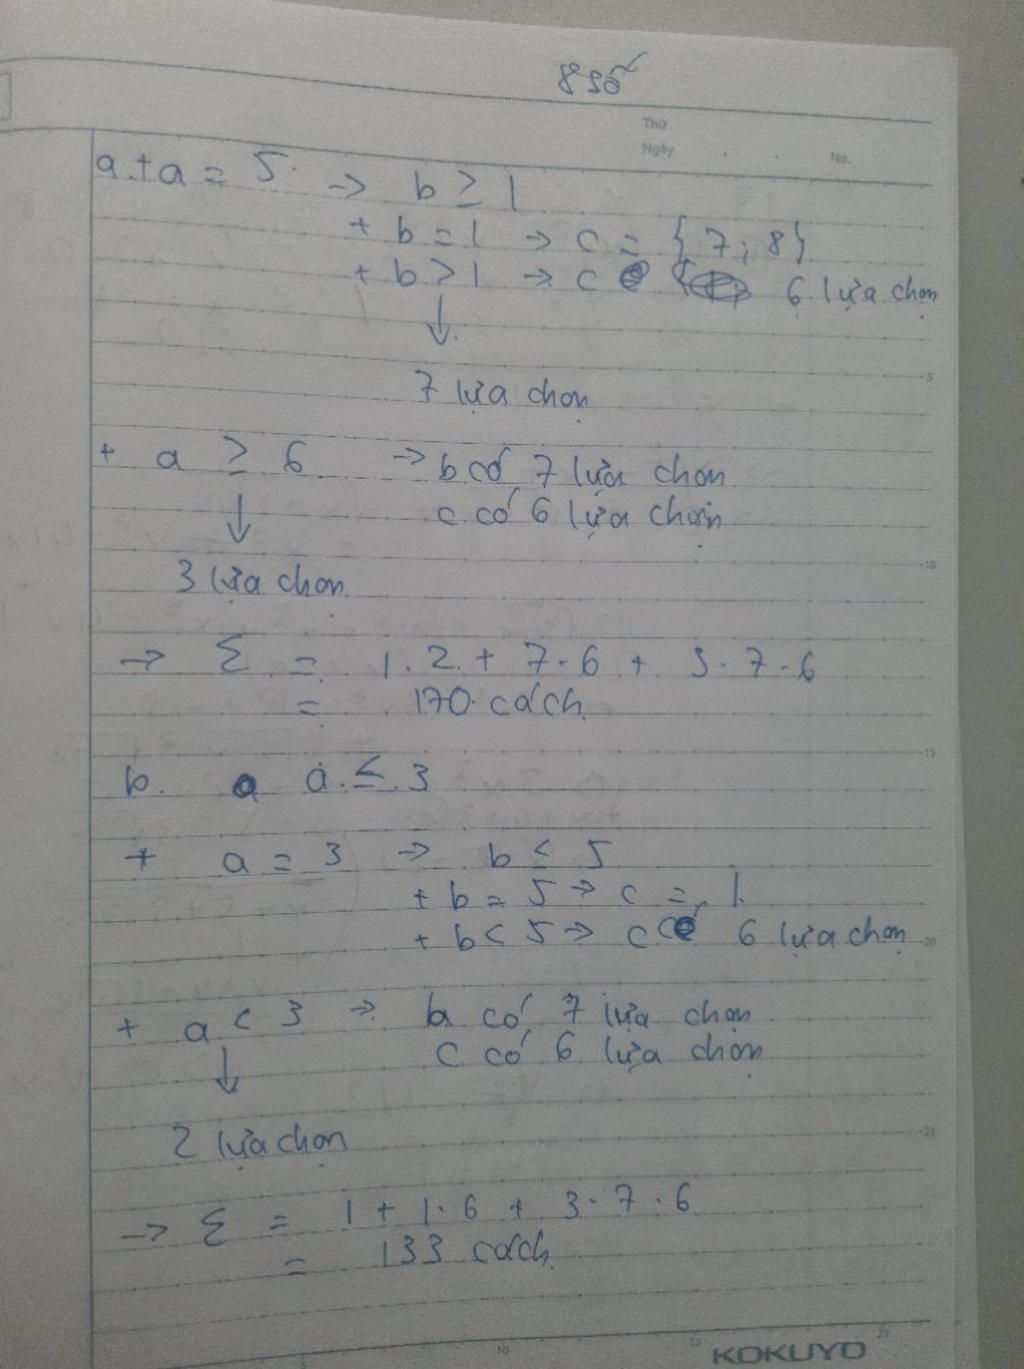 8 số
Thứ
Ngày . . No.
a. + a = 5. → b ≥ 1
+ b = 1 → c = {7; 8}
+ b > 1 → c 6 lựa chọn
↓
7 lựa chọn
+ a ≥ 6 → b có 7 lựa chọn
↓ c có 6 lựa chọn
3 lựa chọn
→ Σ = 1.2. + 7.6 + 3.7.6
= 170 cách.
b. a ≤ 3
+ a = 3 → b ≤ 5
+ b = 5 → c = 1.
+ b < 5 → c 6 lựa chọn
+ a < 3 → b có 7 lựa chọn
↓ c có 6 lựa chọn
2 lựa chọn
→ Σ = 1 + 1.6 + 3.7.6
= 133 cách.
KOKUYO